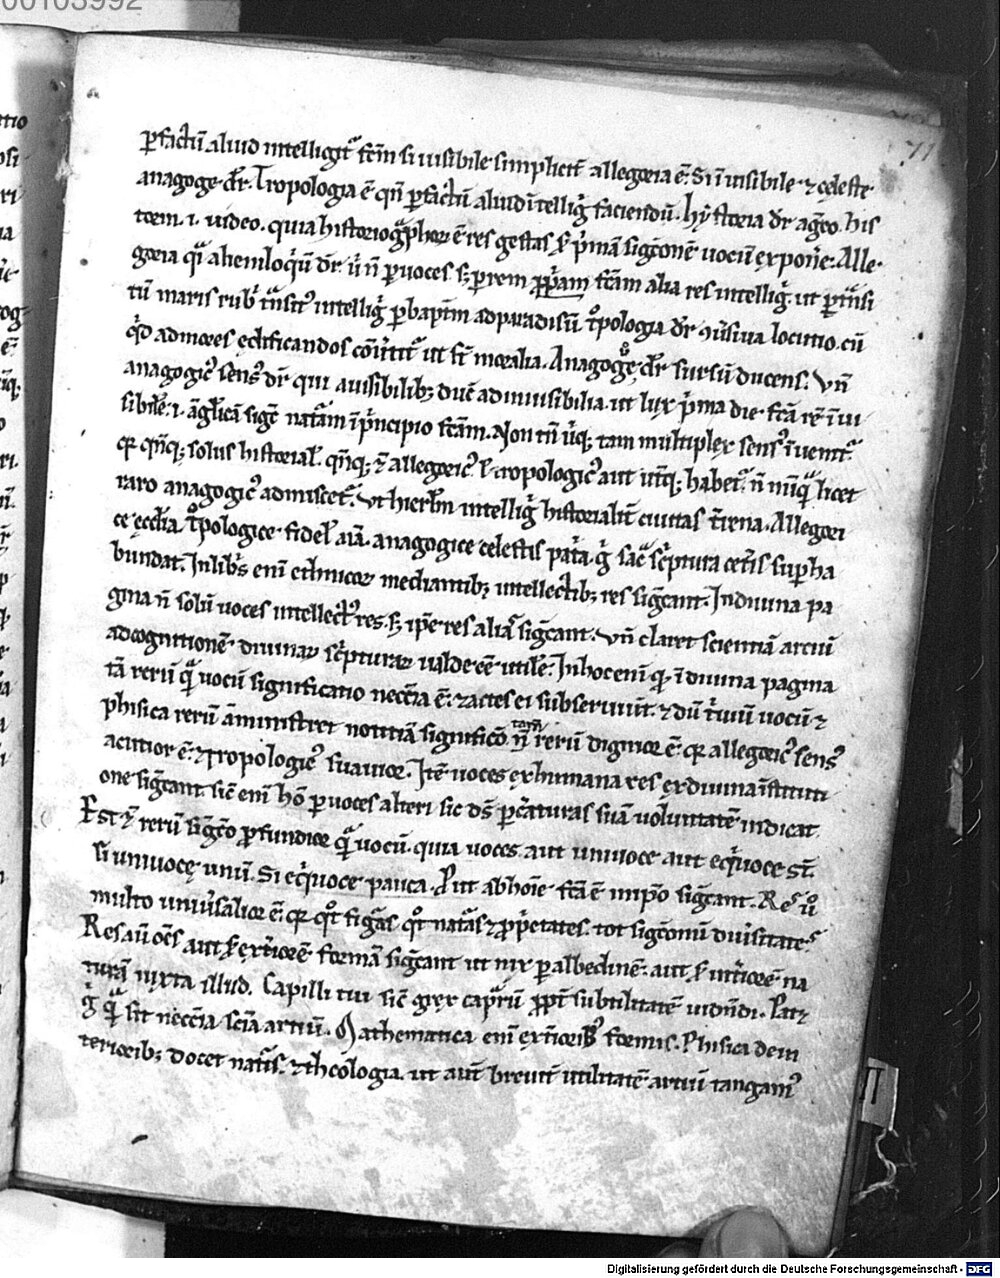 00103992
71
ꝑ factū aliud intelligit᷒ fc̄m si uisibile simplicit̄ allegoria ē. Si ī uisibile ⁊ cęleste
anagoge dr̄. Tropologia ē qn̄ ꝑ factū aliud ītellig̃ faciendū. hẏstoria dr̄ ag̃co. his
toem .i. uideo. quia historiog̃phoꝝ ē res gestas ẜ p̃mā sig̃tionē uocū exponē. Alle
goria q̃i alieniloq̃ū dr̄. ū n̄ ꝑ uoces ẜ ꝑ rem ꝓpⁱam fc̄am alia res intellig̃. ut ꝑ t̃nsi
tū maris rubⁱ t̃nsit᷒ intellig̃ ꝑ bapt̄m ad paradisū. t̊pologia dr̄ ꝯūsiua locutio. cū
q̇d ad mores ędificandos cōūtit᷒ ut st̄ moralia. Anagogę dr̄ sursū ducens. Vn̄
anagogic᷒ sens᷒ dr̄ qui a uisibilibꝫ duc̄ ad inuisibilia. ut lux p̃ma die fc̄a rē ī ui
sibilē .i. āg̃licā sig̃t natām ī p̃ncipio fc̄am. Non tn̄ ūq̨ tam multiplex sens᷒ īuenit᷒
ꝙ qn̄q̨ solus historial̄. qn̄q̨ ⁊ allegoric᷒ ł tropologic᷒ aut ut̃q̨ habet᷒. n̄ nūq̃ licet
raro anagogic᷒ admiscet᷒. Vt hierłm intellig̃ historialit̄ ciuitas t̄rena. Allegori
ce ęcc̄lia. t̊pologice fidel̄ aīa. anagogice celestis pat̃a. g̃ sac̃ sc̃ptura cet̄is suꝑha
bundat. In libⁱs enī ethnicoꝝ mediantibꝫ intellectibꝫ res sig̃cant. In diuina pa
gina n̄ solū uoces intellect᷒ ⁊ res. ẜ ip̄e res aliā sig̃cant. Vn̄ claret scientiā artiū
ad cognitionē diuinaꝝ sc̃pturaꝝ ualde eē utilē. In hoc enī ꝙ ī diuina pagina
tā rerū q̃ uocū significatio necc̄ia ē. ⁊ artes ei subseruiūt. ⁊ dū t̃uiū uocū ⁊
phisica rerū āministret notitiā significō n̄ tam̄ rerū dignior ē. ꝙ allegoric᷒ sens᷒
acutior ē. ⁊ tropologic᷒ suauior. Itē uoces ex humana res ex diuina īstituti
one sig̃cant. sic̄ enī hō ꝑ uoces alteri sic ds̄ ꝑ c̃aturas suā uoluntatē indicat.
Est ⁊ rerū sig̃tō ꝓfundior q̃ uocū. quia uoces aut uniuoce aut eq̃uoce st̄.
si uniuocę unū. Si eq̃uoce pauca. Put ab hoīe fc̄a ē īnpō sig̃cant. Res ů
multo uniūsalior ē. ꝙ qͦt fig̃as qͦt natās ⁊ ꝓp̃etates. tot sig̃tionū diūsitates
Res aū om̄s aut ẜ ext̄iorē formā sig̃cant ut nix ꝑ albedinē. aut ẜ int̄iorē na
turā iuxta illud. Capilli tui sic̄ grex cap̃rū ꝓpt̄ subtilitatē uidn̄di. Patꝫ
g̃ q̃ sit necc̄ia scīa artiū. Mathematica enī ext̄iorib᷒ formis. Phisica de in
terioribꝫ docet natīs. ⁊ theologia. ut aut̄ breuit̄ utilitatē artiū tangam᷒
Digitalisierung gefördert durch die Deutsche Forschungsgemeinschaft - DFG